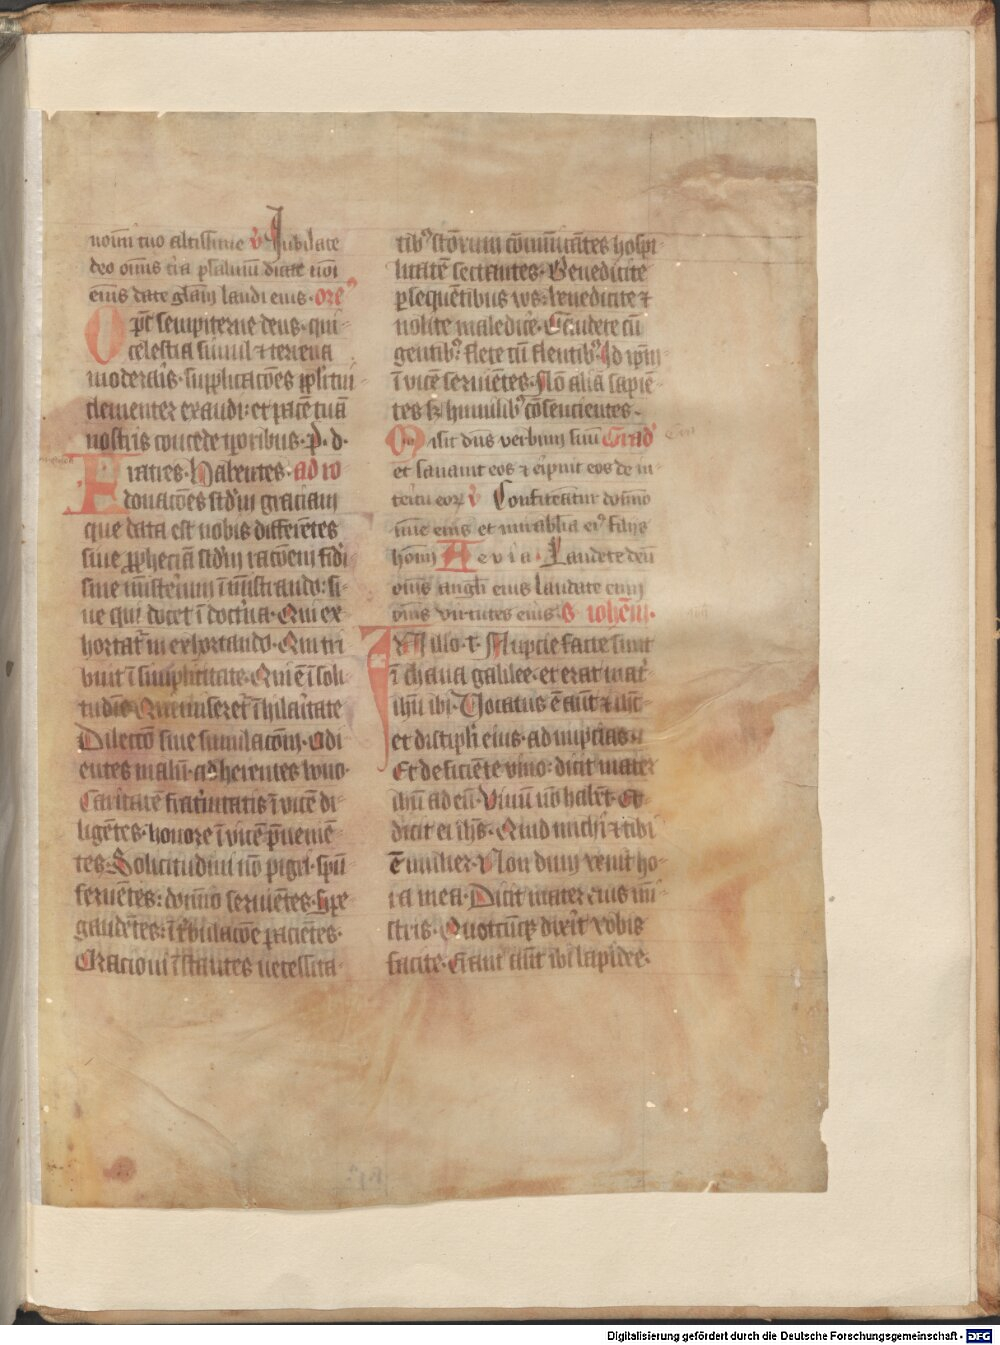 noīni tuo altissime v Jubilate
deo om̄is t̄ra psalmū dicite noī
eius date glām laudi eius · or̄e
Op̄c sempiterne deus · qui
celestia simul ⁊ terrena
moderar̄is · supplicacōes pp̄li tui
clementer exaudi : et pacē tuā
nostris concede tp̄oribus · p̄ · d ·
Fratres · Habentes · ad ro
donacōes scd̄m graciam
que data est nobis differētes
siue ꝓpheciā scd̄m racōem fidi
siue mīsteriūm ī mīstrando : si-
ue qui docet ī doctr̄ina · Qui ex
hortat᷑ in exhortando · Qui tri
buit ī simplicitate · Qui ē ī soli
tudīe · Qui miseret᷑ ī hilar̄itate
Dilectō sine simulacōm̄ · Odi
entes malū · adherentes bono ·
Caritatē frat᷑nitatis īvicē di-
ligētes · honore īvicē p̄uenie-
tes · Sollicitudini nō pigri · sp̄u
feruētes : domīo seruiētes · spe
gaudētes : ī t᷑bulacōe paciētes ·
Oracioni īstantes necessita-
tib᷒ sc̄torum cōmūicātes hospi-
litatē sectantes · Benedicite
ꝑsequētibus vos · benedicite ⁊
nolite maledic̄e · Gaudete cū
gentib᷒ flete cū flentib᷒ Id ip̄m
ī vicē sencientes · Nō alta sapiē-
tes sꝫ humilib᷒ cōsencientes ·
Misit dn̄s verbum suū Grad᷒
et sanauit eos ⁊ eripuit eos de in-
teritu eoꝝ v Confiteātur domīo
mīe eius et mirabl̄ia ei᷒ filijs
homī Aevia · Laudete deū
om̄is angl̄i eius laudate eum
om̄is virtutes eius · S iohēm ·
In illo · t · Nupcie facte sunt
ī chana galilee · et erat mat᷑
ihū ibi · Uocatus ē aūt ⁊ ihc̄
et discipl̄i eius · ad nupcias
Et deficiēte vino : dicit mater
ihū ad eū · Vinū nō habēt · Et
dicit ei ihs̄ · Quid michi ⁊ tibi
ē mulier · Non dum venit ho-
ra mea · Dicit mater eius mī-
stris · Quotcūqꝫ dixerit vobis
facite · Erant aūt ibi lapidee ·
Digitalisierung gefördert durch die Deutsche Forschungsgemeinschaft - DFG